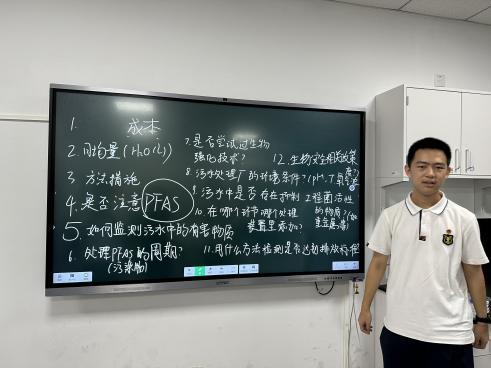 1. 成本
2. 用均量(H₂O/d)
3. 方法措施
4. 是否注意PFAS
5. 如何监测污水中的有害物质
6. 处理PFAS的周期?
(污染物)
7. 是否尝试过生物
强化技术?
8. 污水处理厂的环境条件?(pH、T
9. 污水中是否存在抑制工程菌活性
的物质?(如
重金属等)
10. 在哪个环节哪个处理
装置里添加?
11. 用什么方法检测是否达到排放标准
12. 生物安全相关政策